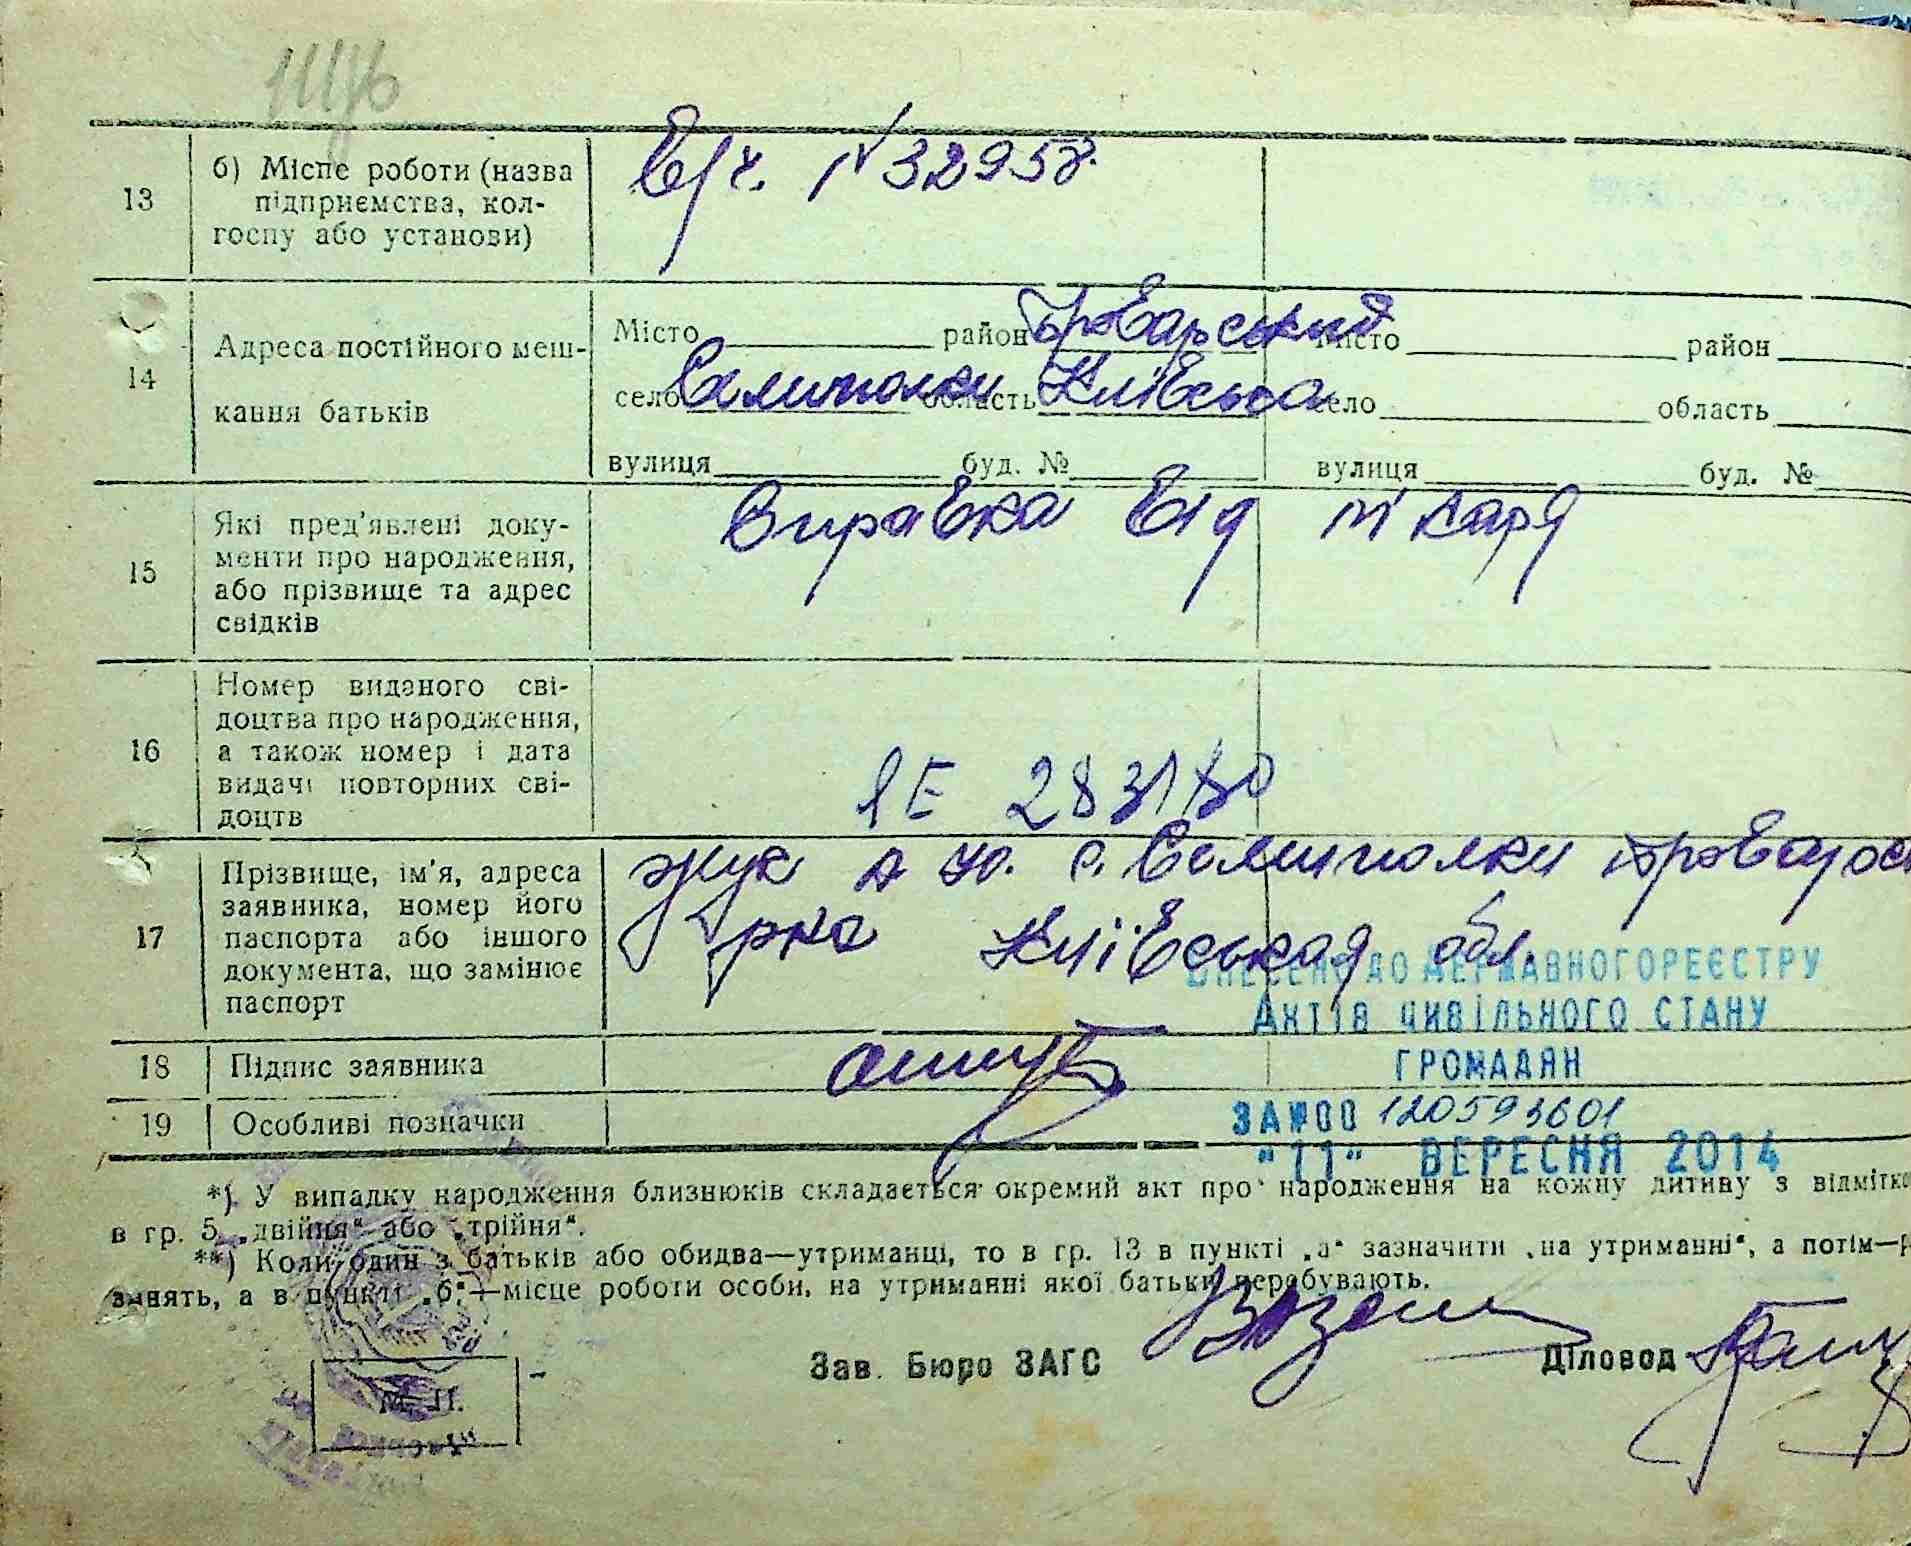 13
б) Місце роботи (назва
підприємства, кол-
госпу або установи)
в/ч. №32958.
14
Адреса постійного меш-
кання батьків
Місто район Броварський Місто район
село Семиполки область Київська село область
вулиця буд. № вулиця буд. №
15
Які пред'явлені доку-
менти про народження,
або прізвище та адрес
свідків
Справка від лікаря
16
Номер виданого сві-
доцтва про народження,
а також номер і дата
видачі повторних сві-
доцтв
17
Прізвище, ім'я, адреса
заявника, номер його
паспорта або іншого
документа, що замінює
паспорт
Жук А Ю. с. Семиполки
р-на Київськая обл.
ВНЕСЕНО ДО ДЕРЖАВНОГО РЕЄСТРУ
АКТІВ ЦИВІЛЬНОГО СТАНУ
ГРОМАДЯН
18 Підпис заявника
19 Особливі позначки
ЗА №00 120593601
"11" ВЕРЕСНЯ 2014
*) У випадку народження близнюків складається окремий акт про народження на кожну дитину з
в гр. 5 „двійня“ або „трійня“.
**) Коли один з батьків або обидва—утриманці, то в гр. 13 в пункті „а“ зазначити „на утриманні“, а потім—
занять, а в пункті „б“—місце роботи особи, на утриманні якої батьки перебувають.
Зав. Бюро ЗАГС
Діловод
М. П.